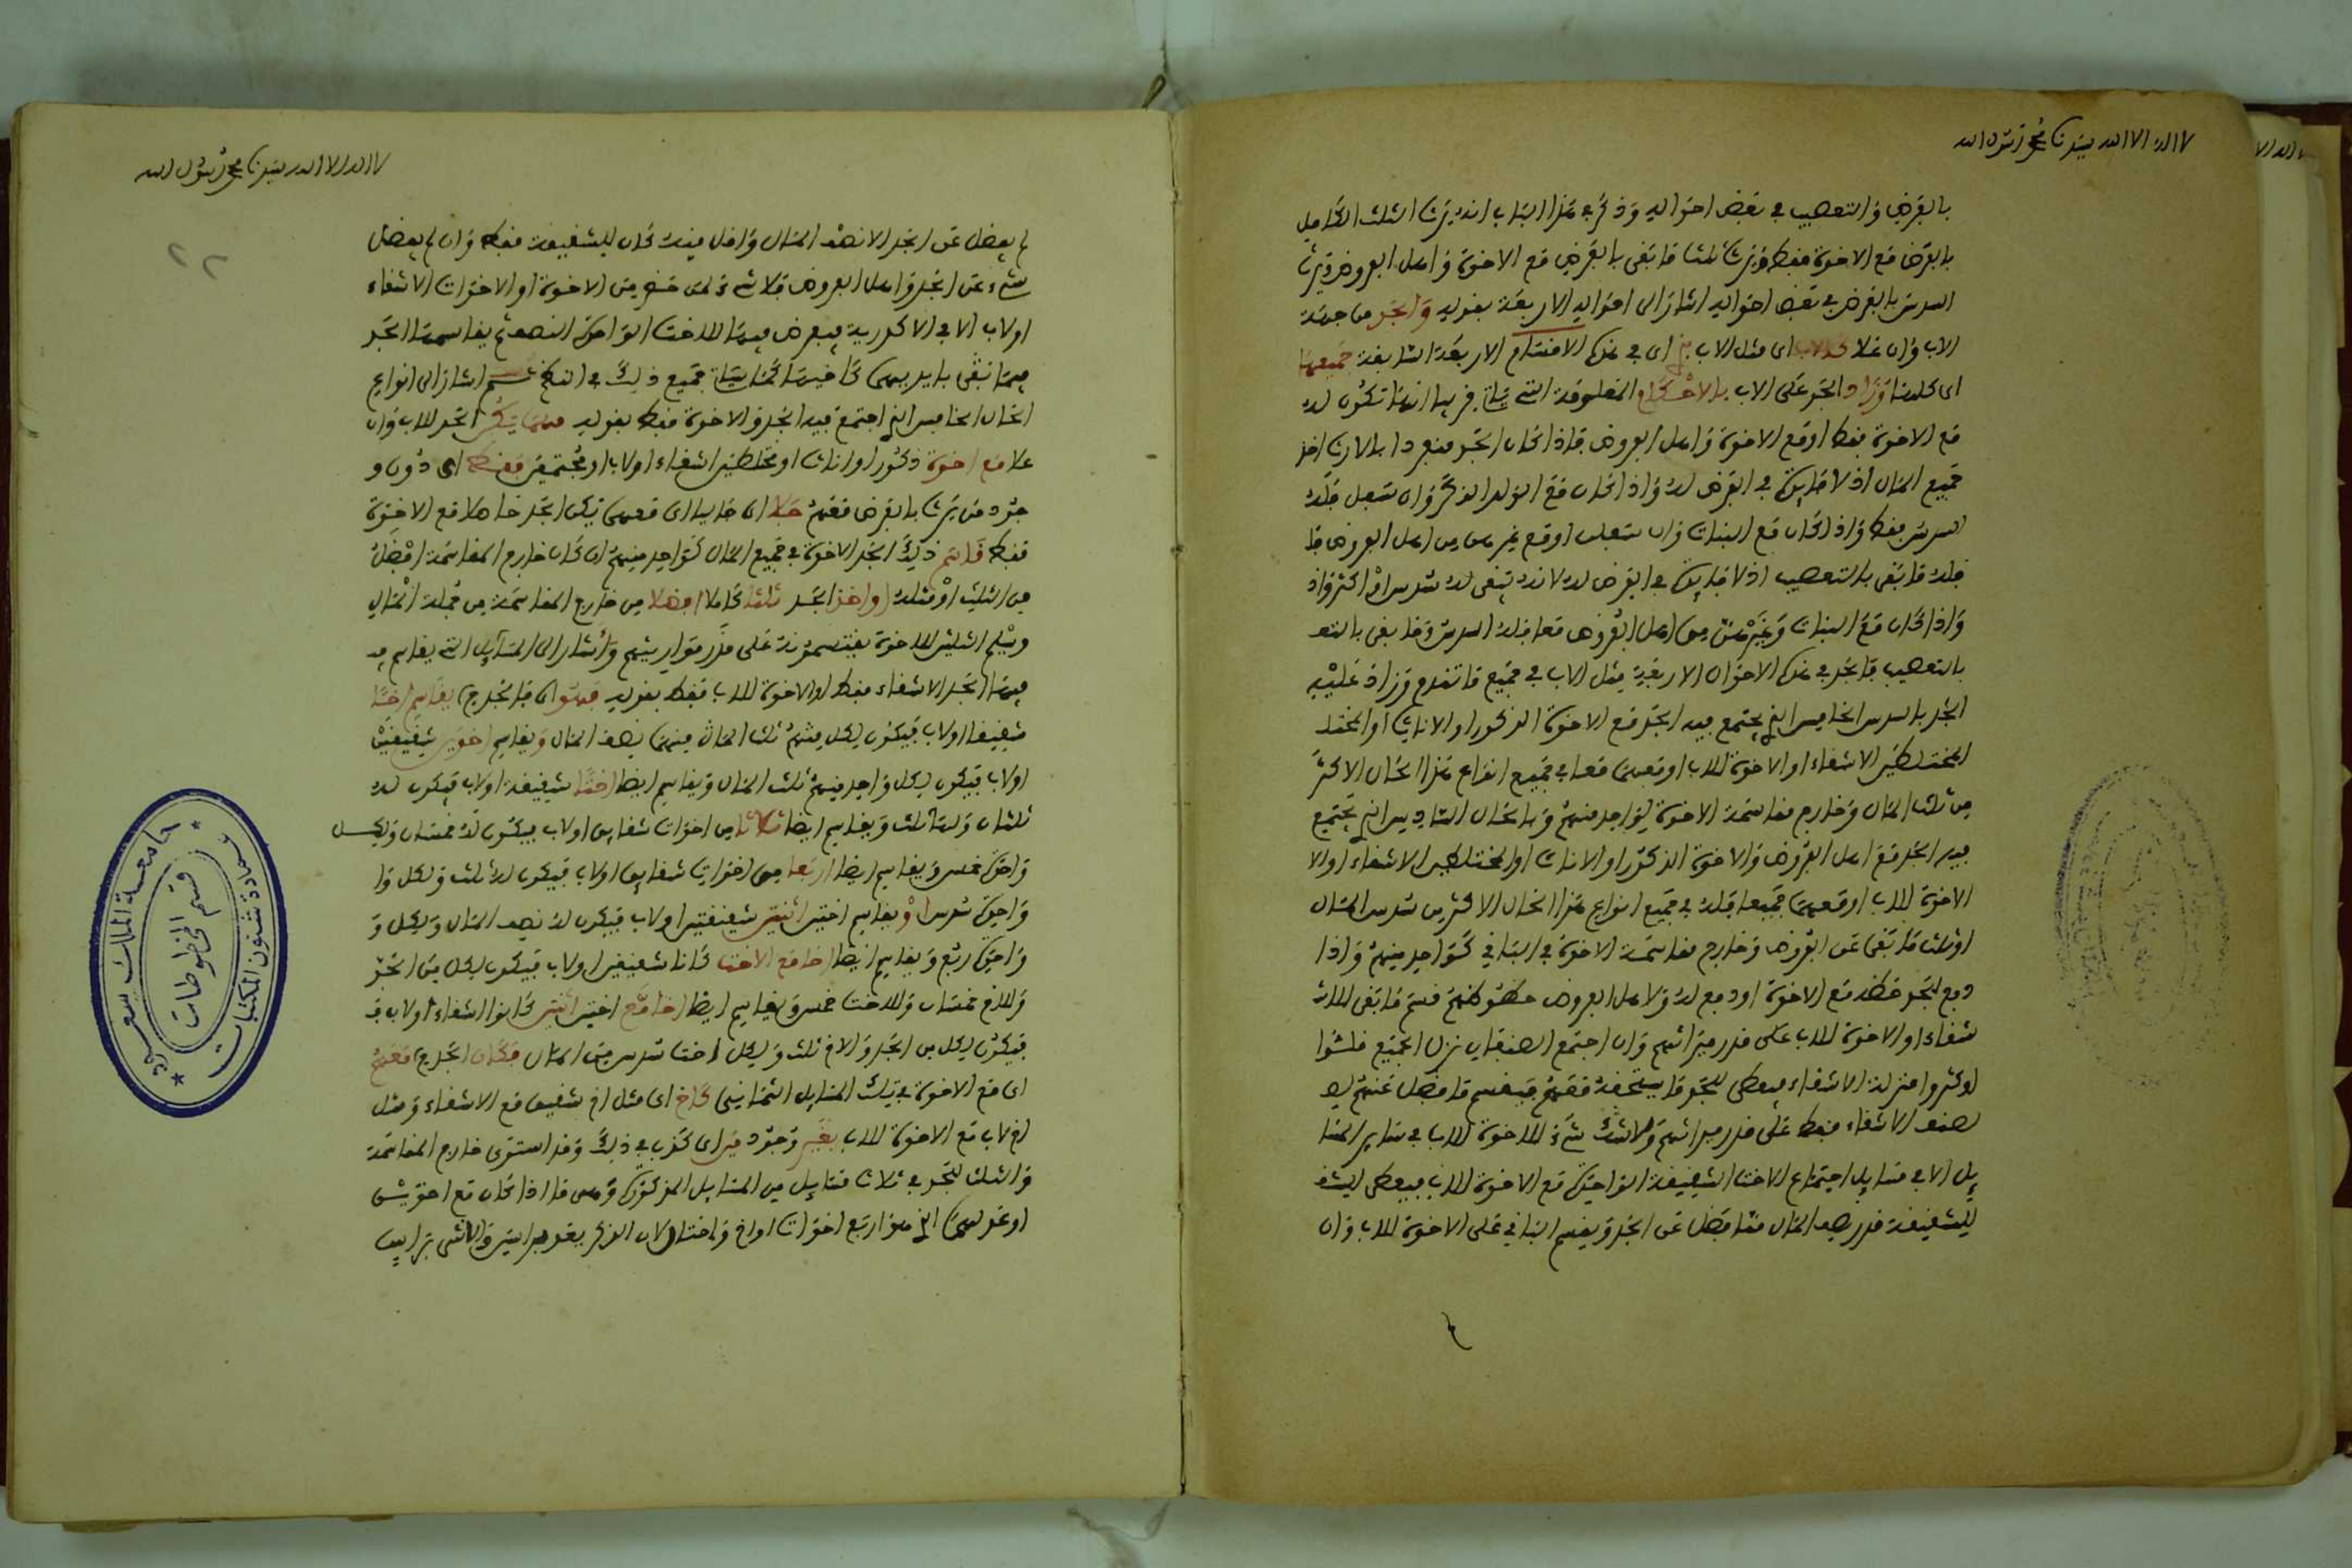 لا اله الا الله سيدنا محمد رسول الله
بالفرض والتعصيب في بعض احواله وذكر في هذا الباب انه يرث الثلث الكامل
بالفرض مع الاخوة فقط ويرث ثلث ما بقى بالفرض مع الاخوة واهل الفروض ويرث
السدس بالفرض في بعض احواله اشار الى احواله الاربعة بقوله والجد من جهة
الاب وان علا كالاب اى مثل الاب في اى في هذه الاقسام الاربعة السابقة جميعها
اى كلها وزاد الجد على الاب بالاحكام المعلومة التي فريبا انها تكون له
مع الاخوة فقط او مع الاخوة واهل الفروض فاذا كان الجد منفردا بالارث اخذ
جميع المال اذ لا في الفرض له واذا كان مع الولد الذكر وان سفل فله
السدس فقط واذا كان مع البنات وان سفلت او مع غيرهن من اهل الفروض فا
فله ما بقى بالتعصيب اذ لا في الفرض له لانه تبقى له سدس او اكثر واذ
واذا كان مع البنات وغيرهن من اهل الفروض معا فله السدس وما بقى بالتعـ
بالتعصيب فالجد في هذه الاحوال الاربعة مثل الاب في جميع ما تقدم وزاد عليه
الجد بالسدس الخامس الذي يجتمع فيه الجد مع الاخوة الذكور او الاناث او المختلـ
المختلطين الاشقاء او الاخوة للاب او معهما معا في جميع انواع هذا الحال الاكثر
من ثلث المال وخارج مقاسمة الاخوة كواحد منهم وبالحال السادس الذي يجتمع
فيه الجد مع اهل الفروض والاخوة الذكور او الاناث او المختلطين الاشقاء او الا
الاخوة للاب او معهما جميعا فله في جميع انواع هذا الحال الاكثر من سدس المال
او ثلث ما بقى عن الفروض وخارج مقاسمة الاخوة في الباقي كواحد منهم واذا
دفع للجد حظه مع الاخوة او دفع له ولاهل الفروض حظوظهم قسم ما بقى للاشـ
شقاء او الاخوة للاب على قدر ميراثهم وان اجتمع الصنفان نزل الجميع فلـوا
او كثروا منزلة الاشقاء فيعطى للجد ما يستحقه معهم فيقسم ما فضل عنهم لـ
لصنف الاشقاء فقط على قدر ميراثهم ولا شىء للاخوة للاب في ساير المسا
يل الا في مسايل اجتماع الاخت الشقيقة الواحدة مع الاخوة للاب فيعطى للشقـ
للشقيقة قدر نصف المال مما فضل عن الجد ويقسم الباقي على الاخوة للاب وان
لا اله الا الله سيدنا محمد رسول الله
٢٢
لم يفضل عن الجد الا نصف المال واقل منه كان للشقيقة فقط وان لم يفضل
شيء عن الجد واهل الفروض فلا شيء لمن حضر من الاخوة او الاخوات الاشقاء
او لاب الا في الاكدرية فيفرض فيها للاخت الواحدة النصف ثم يقاسمها الجد
فيما بقى بايديهما كما جميع ذلك في ثم اشار الى انواع
الحال الخامس الذي اجتمع فيه الجد والاخوة فقط بقوله مهما يكن الجد للاب وان
علا مع اخوة ذكور او اناث او مختلطين اشقاء او لاب او مجتمعين فقط اى دون و
جود من يرث بالفرض معهم خلا اى خاليا اى فمهما يكن الجد حاصلا مع الاخوة
فقط قاسم ذلك الجد الاخوة في جميع المال كواحد منهم ان كان خارج المقاسمة افضل
من الثلث او مثله او اخذ الجد ثلثا كاملا افضلا من خارج المقاسمة من جملة المال
ويسلم الثلثين للاخوة يقتسمونه على قدر مواريثهم واشار الى المسايل التي يقاسم فيـ
فيها الجد الاشقاء فقط او الاخوة للاب فقط بقوله فهو اى فالجد يقاسم اخا
شقيقا او لاب فيكون لكل منهم ثلث المال منهما نصف المال ويقاسم اخوين شقيقين
او لاب فيكون لكل واحد منهم ثلث المال ويقاسم ايضا اختا شقيقة او لاب فيكون له
ثلثان ولها ثلث ويقاسم ايضا ثلاثا من اخوات شقايق او لاب فيكون له خمسان ولكـل
واحدة خمس ويقاسم ايضا اربعا من اخوات شقايق او لاب فيكون له ثلث ولكل وا
واحدة سدس او يقاسم اختين اثنتين شقيقتين او لاب فيكون له نصف المال ولكل و
واحدة ربع ويقاسم ايضا اخا مع الاخت كانا شقيقين او لاب فيكون لكل من الجد
وللاخ خمسان وللاخت خمس ويقاسم ايضا اخا مع اختين اثنتين كانوا اشقاء او لاب فـ
فيكون لكل من الجد والاخ ثلث ولكل اخت سدس من المال فكان الجد معهم
اى مع الاخوة في تلك المسايل الثمانية كاخ اى مثل اخ شقيق مع الاشقاء ومثل
اخ لاب مع الاخوة للاب بغير وجود مين اى كذب في ذلك وقد استوى خارج المقاسمة
والثلث للجد في ثلاث مسايل من المسايل المذكورة وهى ما اذا كان مع اخوين
او عدلهما الذي هو اربع اخوات او اخ واختان لان الذكر يعد براسين والانثى براس
جامعة الملك سعود
عمادة شئون المكتبات
قسم المخطوطات